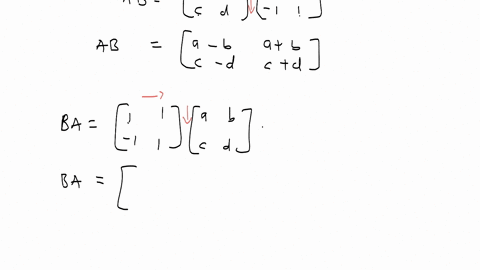 AB = [c d] [-1 1]
AB = [a-b a+b
c-d c+d]
BA = [1 1
-1 1] [a b
c d].
BA = [